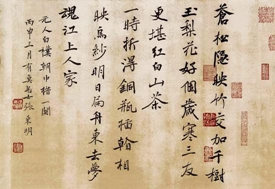 蒼松隱映竹交加千樹
玉梨花好個歲寒三友
更堪紅白山茶
一時折得銅瓶插看相
映烏紗明日扁舟東去夢
魂江上人家
元人白樸朝中措一闋
丙申三月張東明